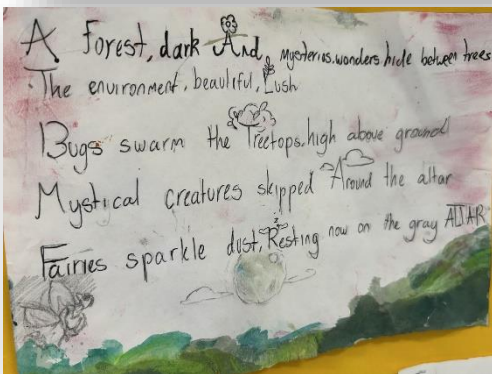 A Forest, dark And, mysterios.wonders hide between trees
The environment, beautiful, Lush
Bugs swarm the Treetops.high above ground
Mystical creatures skipped Around the altar
Fairies sparkle dust, Resting now on the gray ALTAR